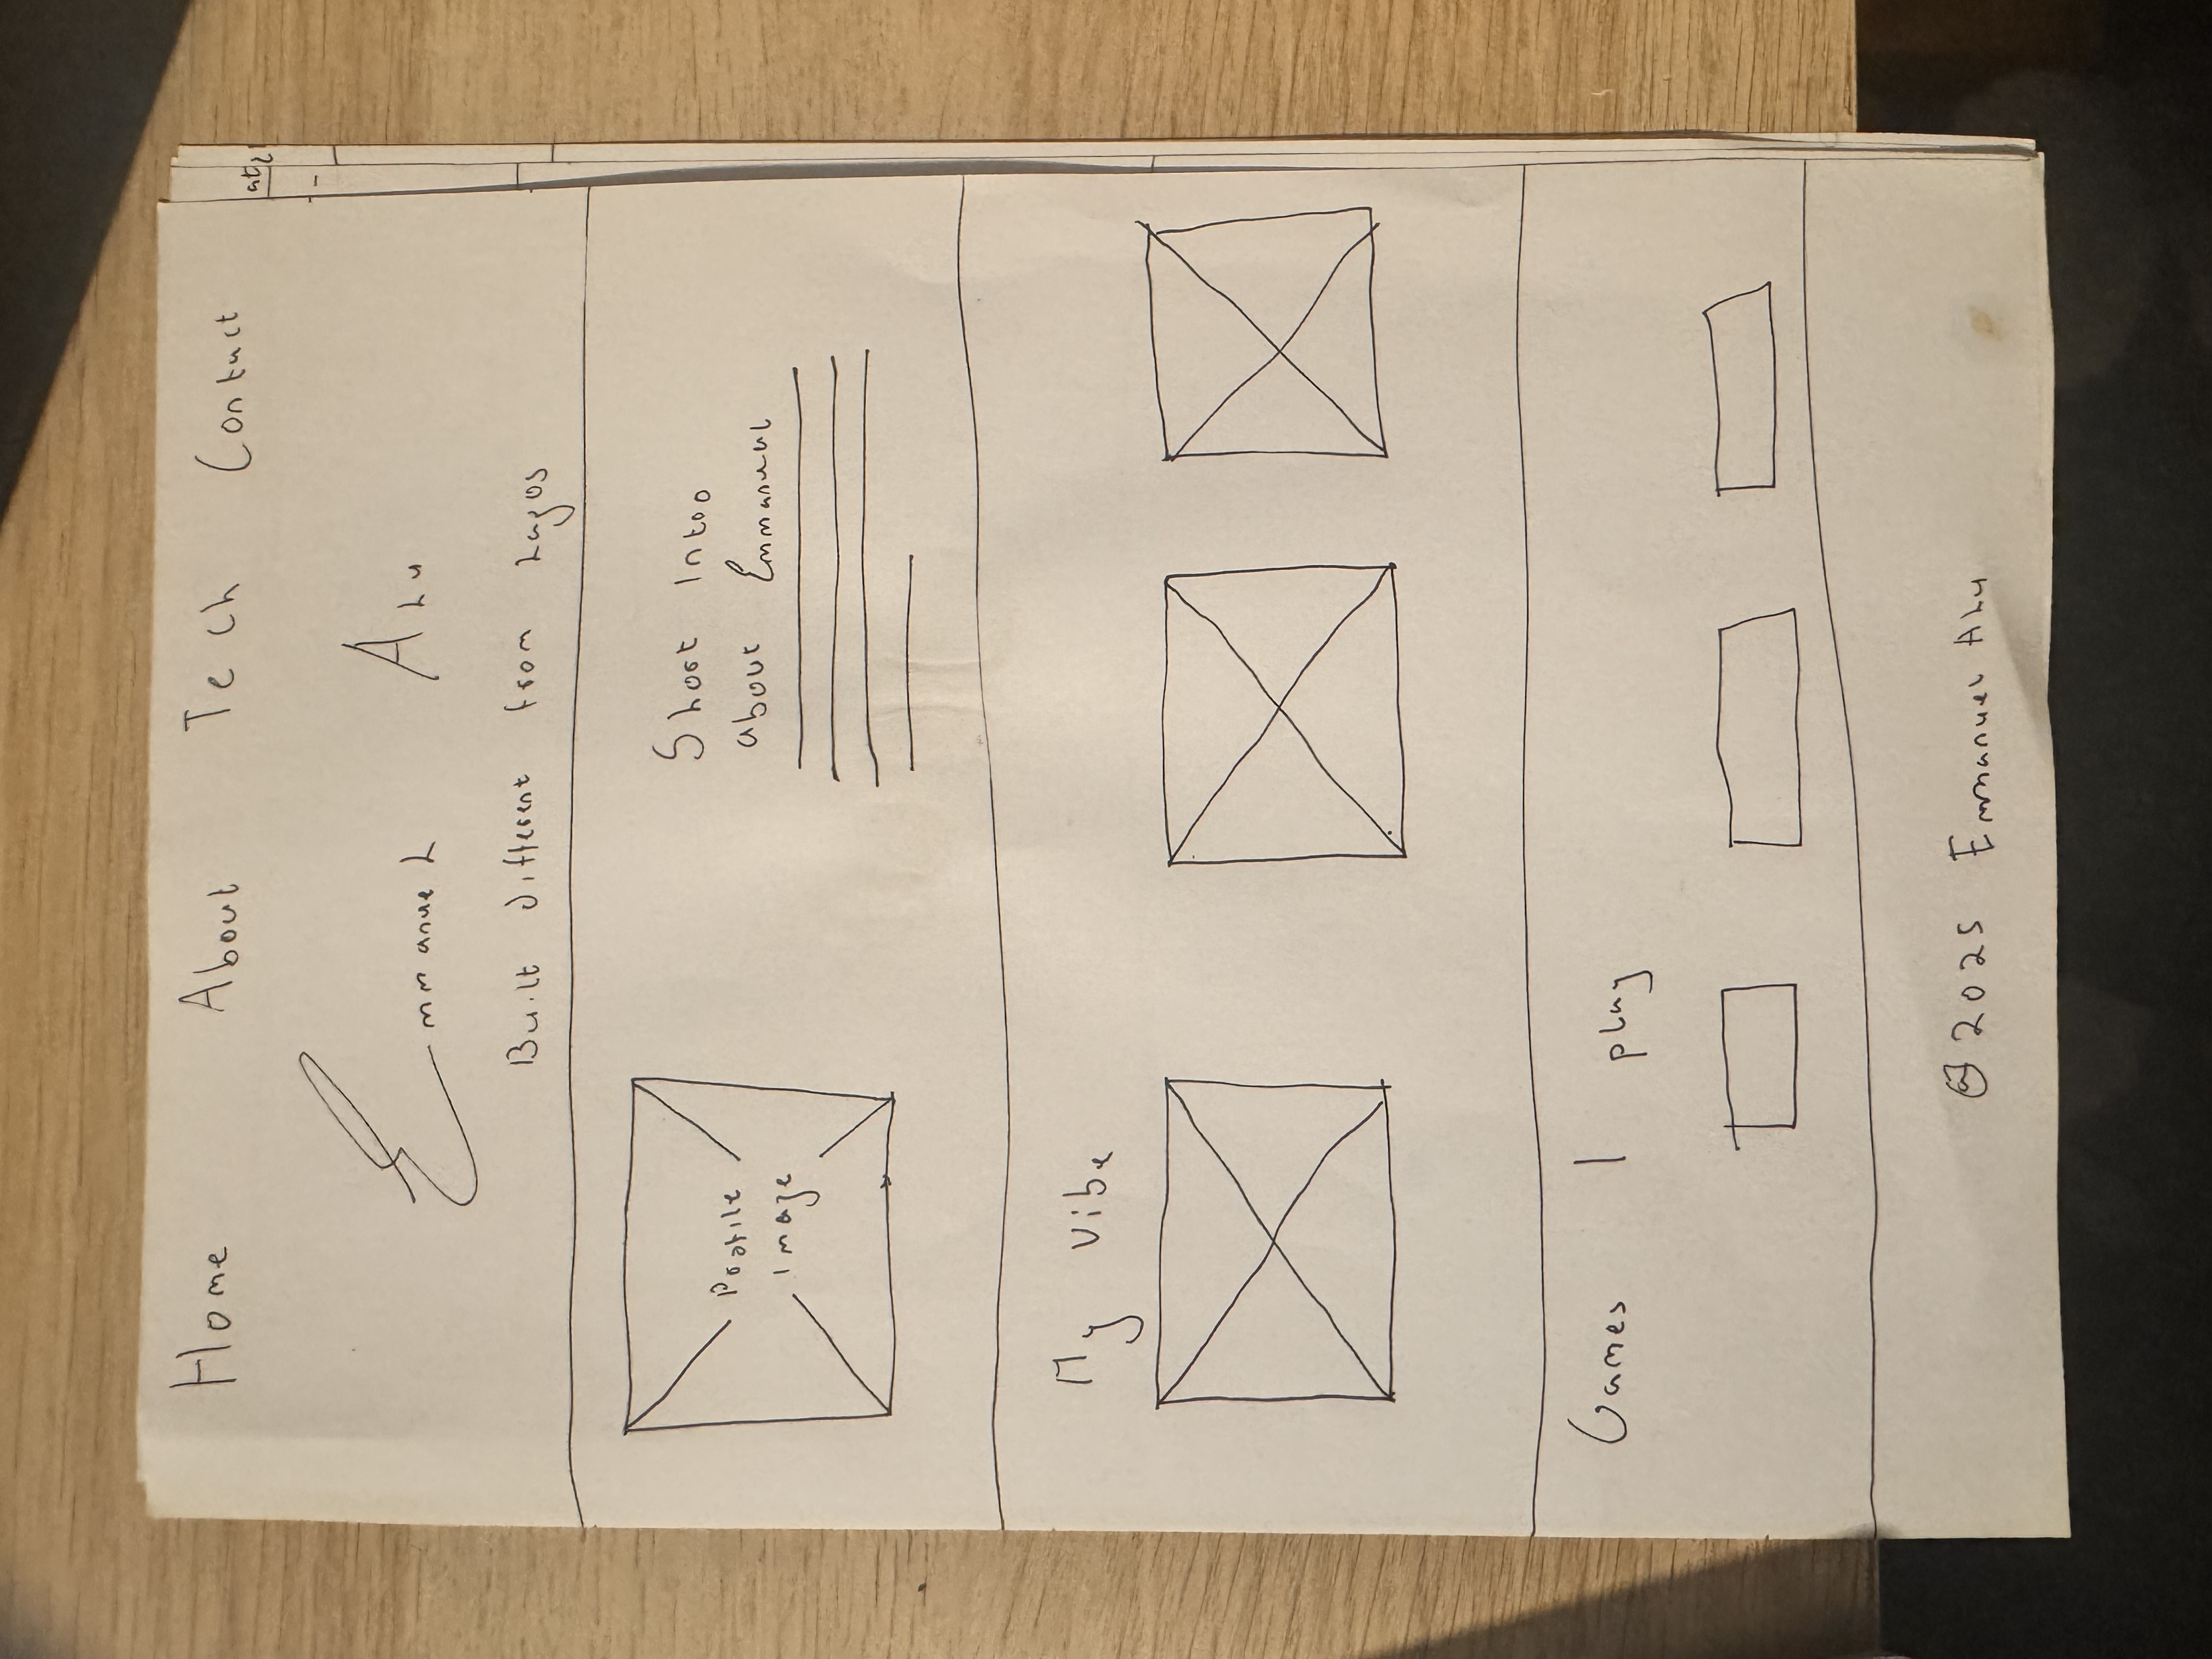 Home About Tech Contact
Emmanuel Alu
Built different from Lagos
Profile
image
Short Intro
about Emmanuel
My Vibe
Games I play
@2025 Emmanuel Alu